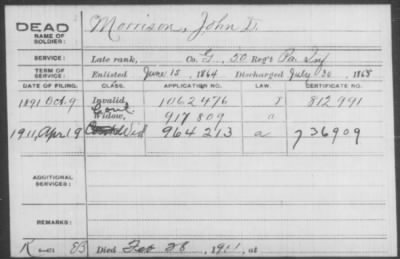 DEAD
NAME OF SOLDIER: Morrison, John D.
SERVICE: Late rank, Co. G, 50 Reg't Pa Inf
TERM OF SERVICE: Enlisted June 15, 1864 Discharged July 30, 1865
DATE OF FILING. CLASS. APPLICATION NO. LAW. CERTIFICATE NO.
1891 Oct. 9 Invalid, 1062476 812991
Cont
Widow, 917809 a
1911, April 9 Wid 964213 a 736909
ADDITIONAL SERVICES:
REMARKS:
Died Feb 28, 1911, at